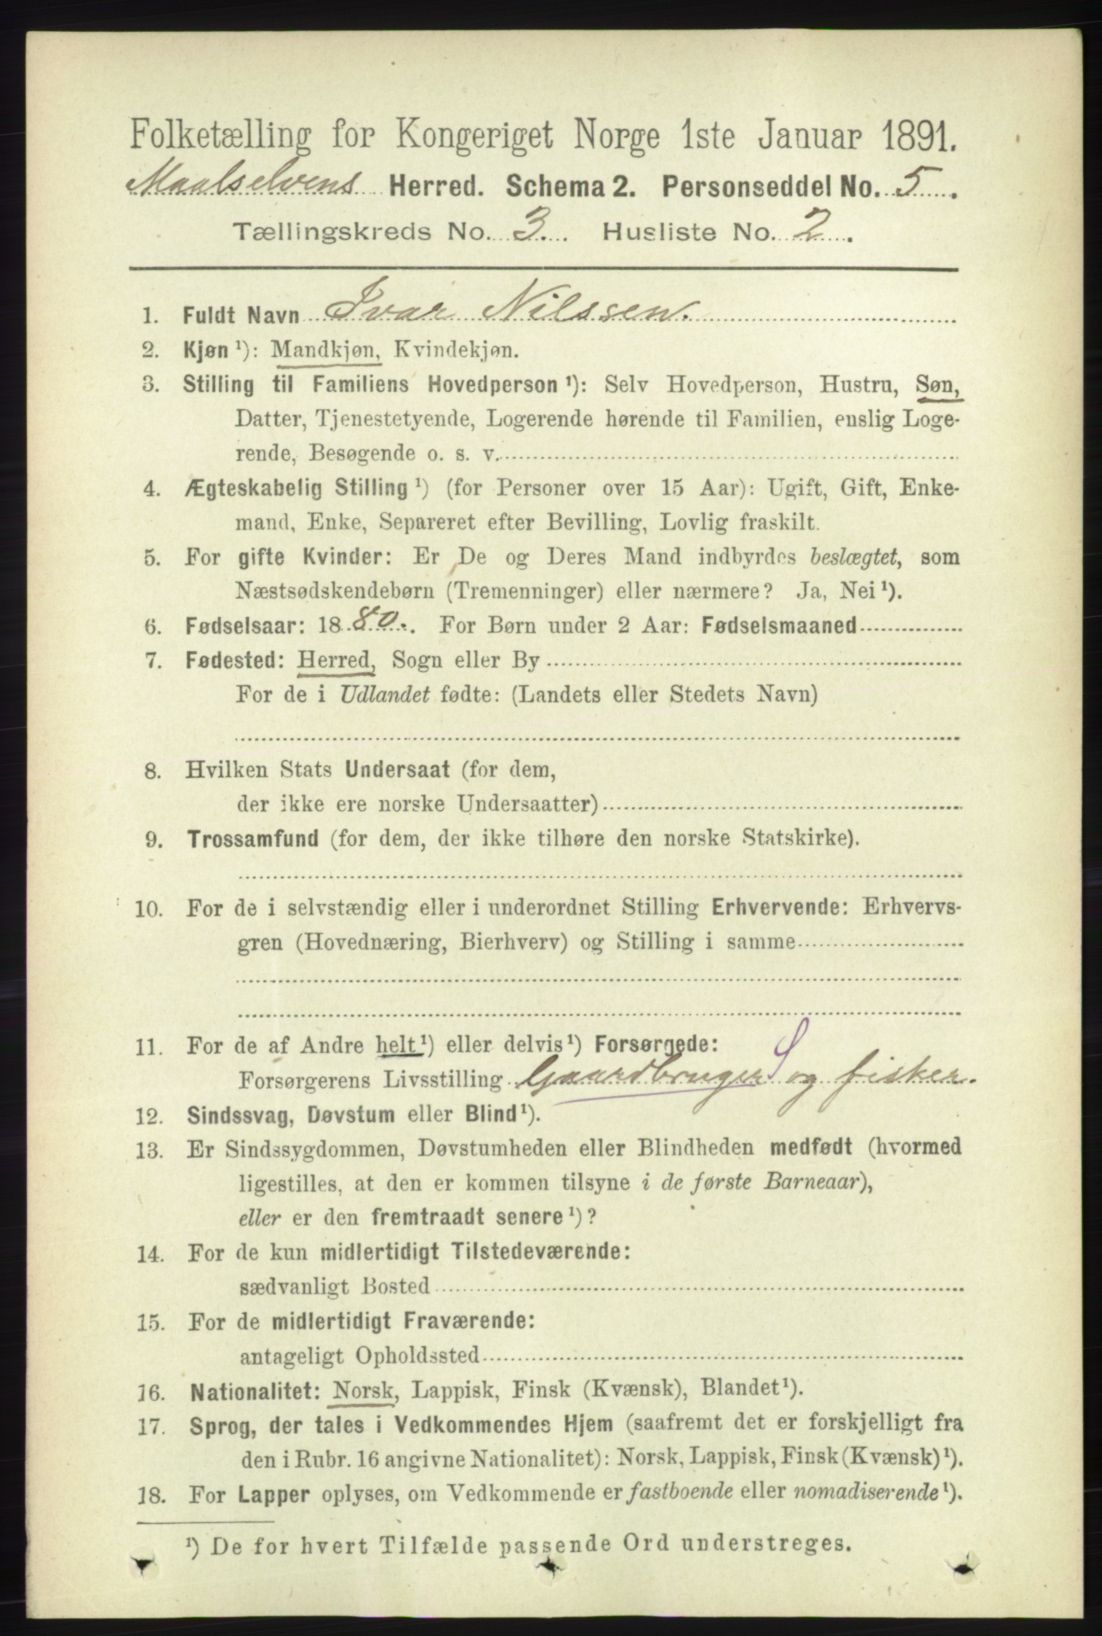 Folketælling for Kongeriget Norge 1ste Januar 1891.
Maalselvens Herred. Schema 2. Personseddel No. 5.
Tællingskreds No. 3. Husliste No. 2.
1. Fuldt Navn Ivar Nilssen.
2. Kjøn ¹): Mandkjøn, Kvindekjøn.
3. Stilling til Familiens Hovedperson ¹): Selv Hovedperson, Hustru, Søn,
Datter, Tjenestetyende, Logerende hørende til Familien, enslig Loge-
rende, Besøgende o. s. v.
4. Ægteskabelig Stilling ¹) (for Personer over 15 Aar): Ugift, Gift, Enke-
mand, Enke, Separeret efter Bevilling, Lovlig fraskilt.
5. For gifte Kvinder: Er De og Deres Mand indbyrdes beslægtet, som
Næstsødskendebørn (Tremenninger) eller nærmere? Ja, Nei ¹).
6. Fødselsaar: 1880. For Børn under 2 Aar: Fødselsmaaned
7. Fødested: Herred, Sogn eller By
For de i Udlandet fødte: (Landets eller Stedets Navn)
8. Hvilken Stats Undersaat (for dem,
der ikke ere norske Undersaatter)
9. Trossamfund (for dem, der ikke tilhøre den norske Statskirke).
10. For de i selvstændig eller i underordnet Stilling Erhvervende: Erhvervs-
gren (Hovednæring, Bierhverv) og Stilling i samme
11. For de af Andre helt ¹) eller delvis ¹) Forsørgede: S
Forsørgerens Livsstilling Gaardbruger og fisker.
12. Sindssvag, Døvstum eller Blind ¹).
13. Er Sindssygdommen, Døvstumheden eller Blindheden medfødt (hvormed
ligestilles, at den er kommen tilsyne i de første Barneaar),
eller er den fremtraadt senere ¹)?
14. For de kun midlertidigt Tilstedeværende:
sædvanligt Bosted
15. For de midlertidigt Fraværende:
antageligt Opholdssted
16. Nationalitet: Norsk, Lappisk, Finsk (Kvænsk), Blandet ¹).
17. Sprog, der tales i Vedkommendes Hjem (saafremt det er forskjelligt fra
den i Rubr. 16 angivne Nationalitet): Norsk, Lappisk, Finsk (Kvænsk) ¹).
18. For Lapper oplyses, om Vedkommende er fastboende eller nomadiserende ¹).
¹) De for hvert Tilfælde passende Ord understreges.